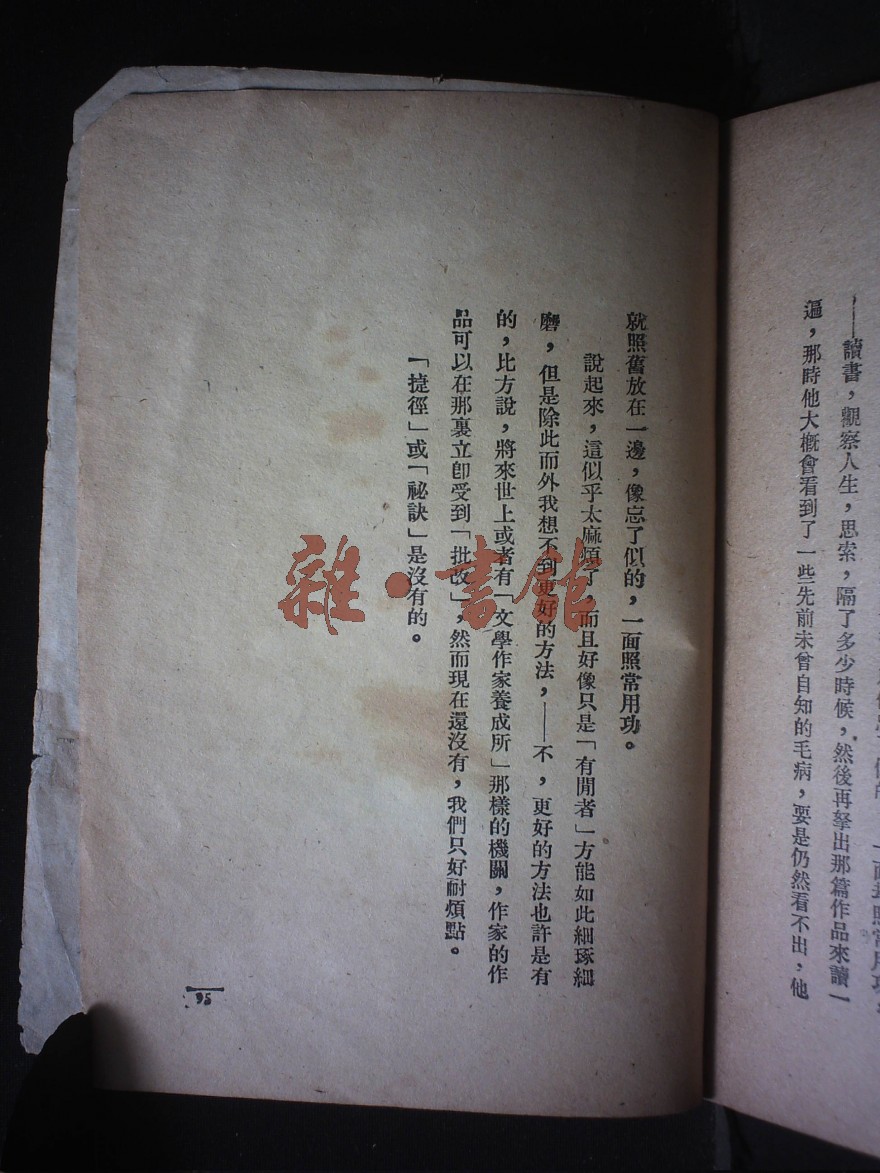 一面照常用功，
——讀書，觀察人生，思索，隔了多少時候，然後再拏出那篇作品來讀一
遍，那時他大槪會看到了一些先前未曾自知的毛病，要是仍然看不出，他
就照舊放在一邊，像忘了似的，一面照常用功。
說起來，這似乎太麻煩了，而且好像只是「有閒者」方能如此細琢細
磨，但是除此而外我想不到更好的方法，——不，更好的方法也許是有
的，比方說，將來世上或者有「文學作家養成所」那樣的機關，作家的作
品可以在那裏立卽受到「批改」，然而現在還沒有，我們只好耐煩點。
「捷徑」或「祕訣」是沒有的。
95
雜·書館